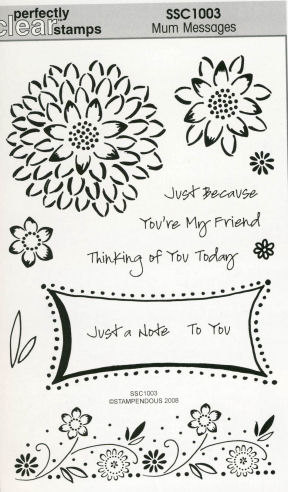 perfectly
clear stamps
SSC1003
Mum Messages
Just Because
You're My Friend
Thinking of You Today
Just a Note To You
SSC1003
©STAMPENDOUS 2008